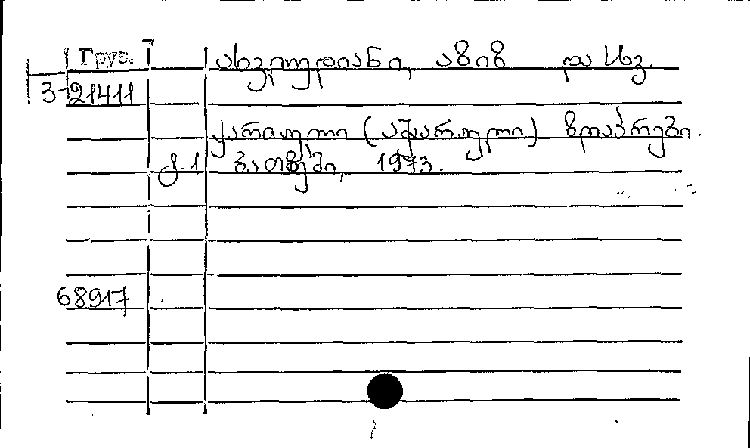 Груз.
ახვლედიანი, აზიზ და სხვ.
3-21411
ქართული (აჭარული) ზღაპრები.
ქ.1 ბათუმი, 1973.
68917